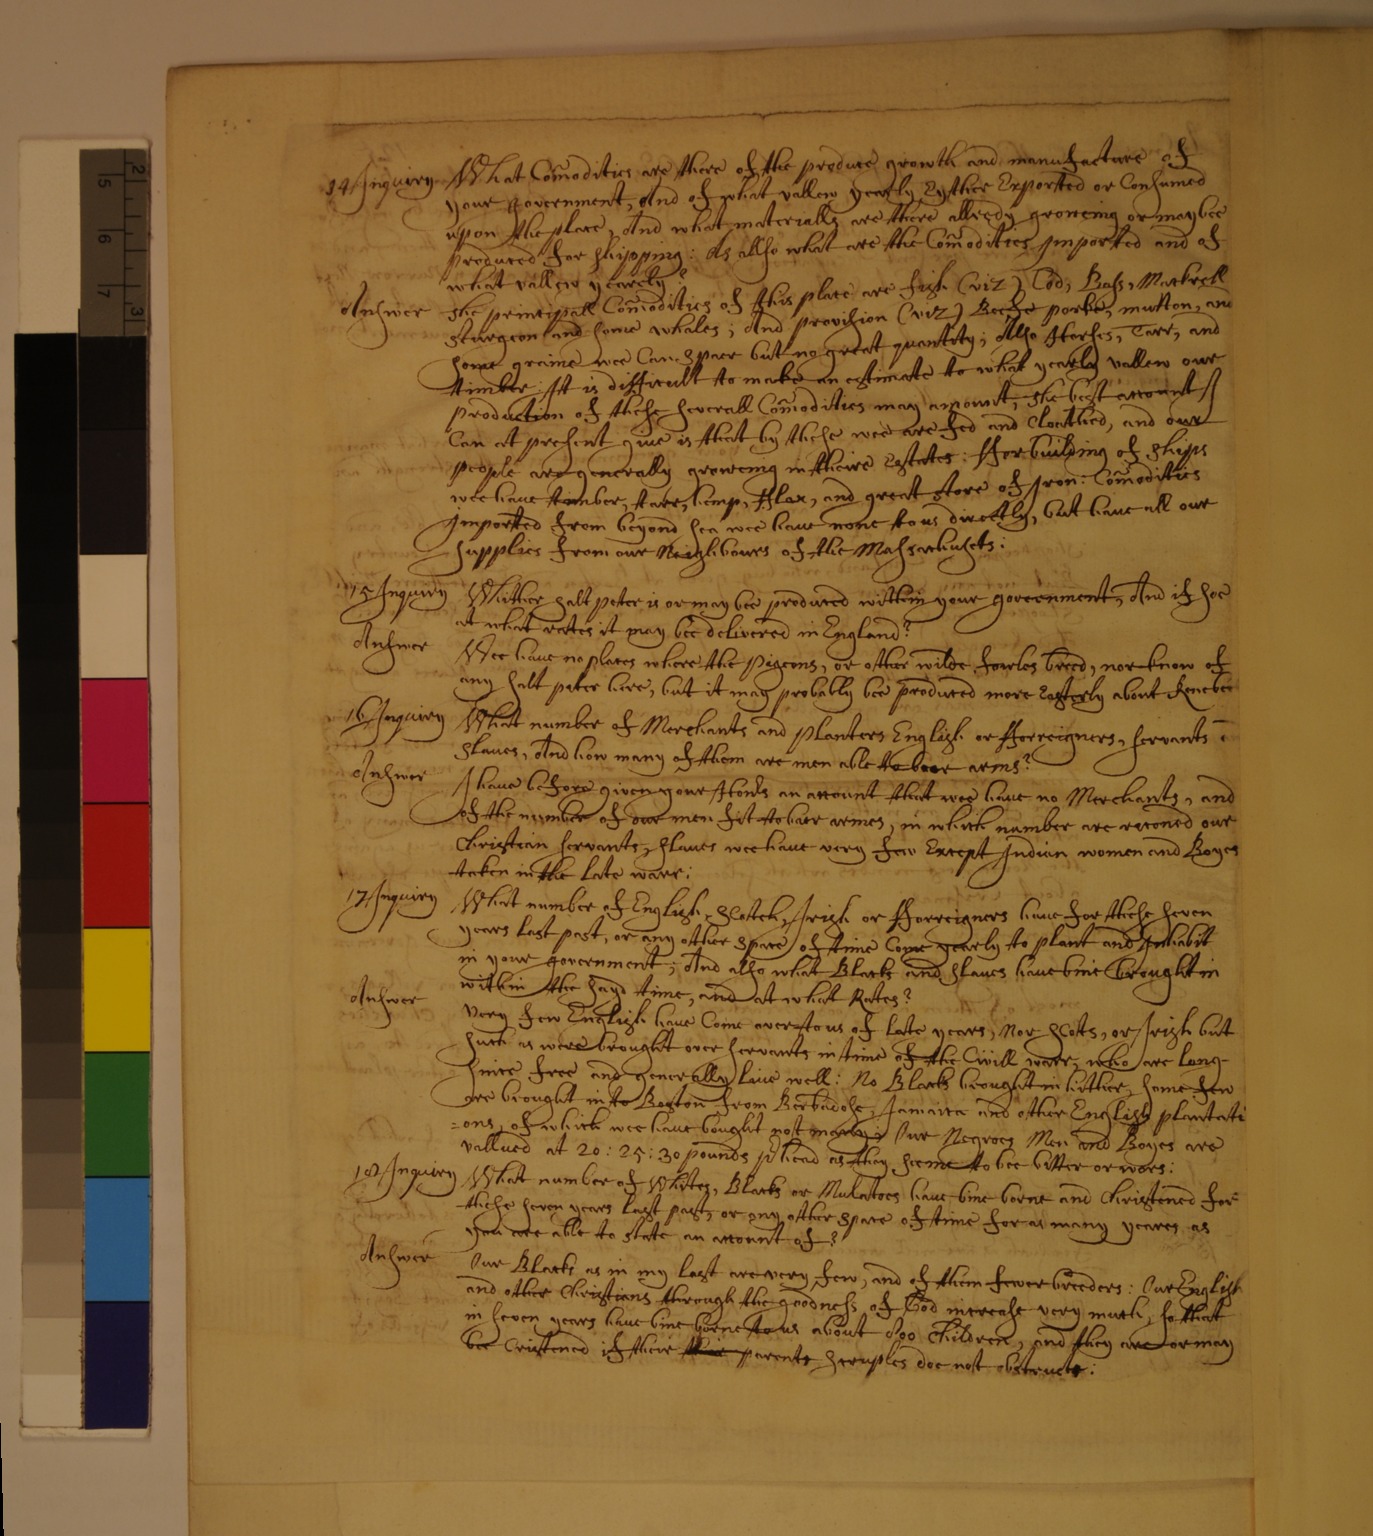 14 Inquiry What Comodities are there of the produce growth and manufacture of
your government, And of what vallew yearly Eyther Exported or Consumed
upon the place, And what materialls are there allredy growing or may bee
produced for shipping: As allso what are the Comodities Imported and of
what vallew yearely?
Answer The principall Comodities of this place are fish (viz) Cod, Bass, Mackrell
Sturgeon and some whales; And provision (viz) Beefe porke, mutton, and
some graine wee Can spare but no great quantity; Allso Horses, Tarr, and
timber: It is difficult to make an estimate to what yearly vallew our
production of these severall Comodities may amount, the best account I
Can at present give is that by these wee are fed and Cloathed, and our
people are generally groweing in theire Estates: ffor building of Ships
wee have timber, tarr, hemp, fflax, and great store of Iron: Comodities
Imported from beyond sea wee have none to us directly, but have all our
supplies from our Neighbours of the Massachusets:
15 Inquiry Whither salt peter is or may bee produced within your government, And if soe
at what rates it may bee delivered in England?
Answer Wee have no places where the Pigeons, or other wilde fowles breed, nor know of
any salt peter here, but it may probably bee produced more Easterly about Kenebec
16 Inquiry What number of Merchants and planters English or fforreigners, servants &
Slaves, And how many of them are men able to bear arms?
Answer I have before given your Honrs an account that wee have no Merchants, and
of the number of our men fit to bear armes, in which number are reconed our
Christian servants, slaves wee have very few Except Indian women and Boyes
taken in the late warr:
17 Inquiry What number of English, Scotch, Irish or fforreigners have for these seven
years last past, or any other space of time Come yearly to plant and Inhabit
in your government; And also what Blacks and slaves have bine brought in
within the sayd time, and at what Rates?
Answer Very few English have Come over to us of late years, Nor Scots, or Irish but
such as were brought over servants in time of the Civill warr, who are long-
since free and generally live well: No Blacks brought in hither, some few
are brought in to Boston from Berbadose, Jamaica and other English plantati
=ons, of which wee have bought not many: Our Negroes Men and Boyes are
vallued at 20: 25: 30 pounds p head as they seeme to bee bitter or wors:
18 Inquiry What number of Whites, Blacks or Mulatoes have bine borne and Christened for
these seven years last past, or any other space of time for as many yeares as
you are able to state an account of?
Answer Our Blacks as in my last are very few, and of them fewer breeders: Our English
and other Christians through the goodness of God increase very much, so that
in seven years have bine borne to us about children, and they are or may
bee Cristened if their parents scruples doe not obstructe: